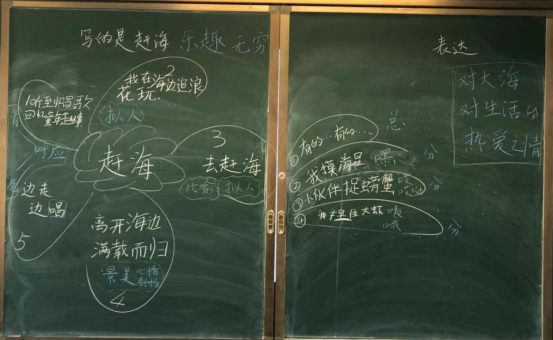 写的是赶海 乐趣无穷
2
我在海边追浪
花玩
拟人
听到唱歌
呼应
赶海
3
去赶海
比喻 拟人
边走
边唱
5
离开海边
满载而归
景美 心情
4
表达
对大海
对生活的
热爱之情
①有的…有的… 总
②我摸海星 嘿 分
③小伙伴捉螃蟹 哎 分
④ 住大虾 咦
分